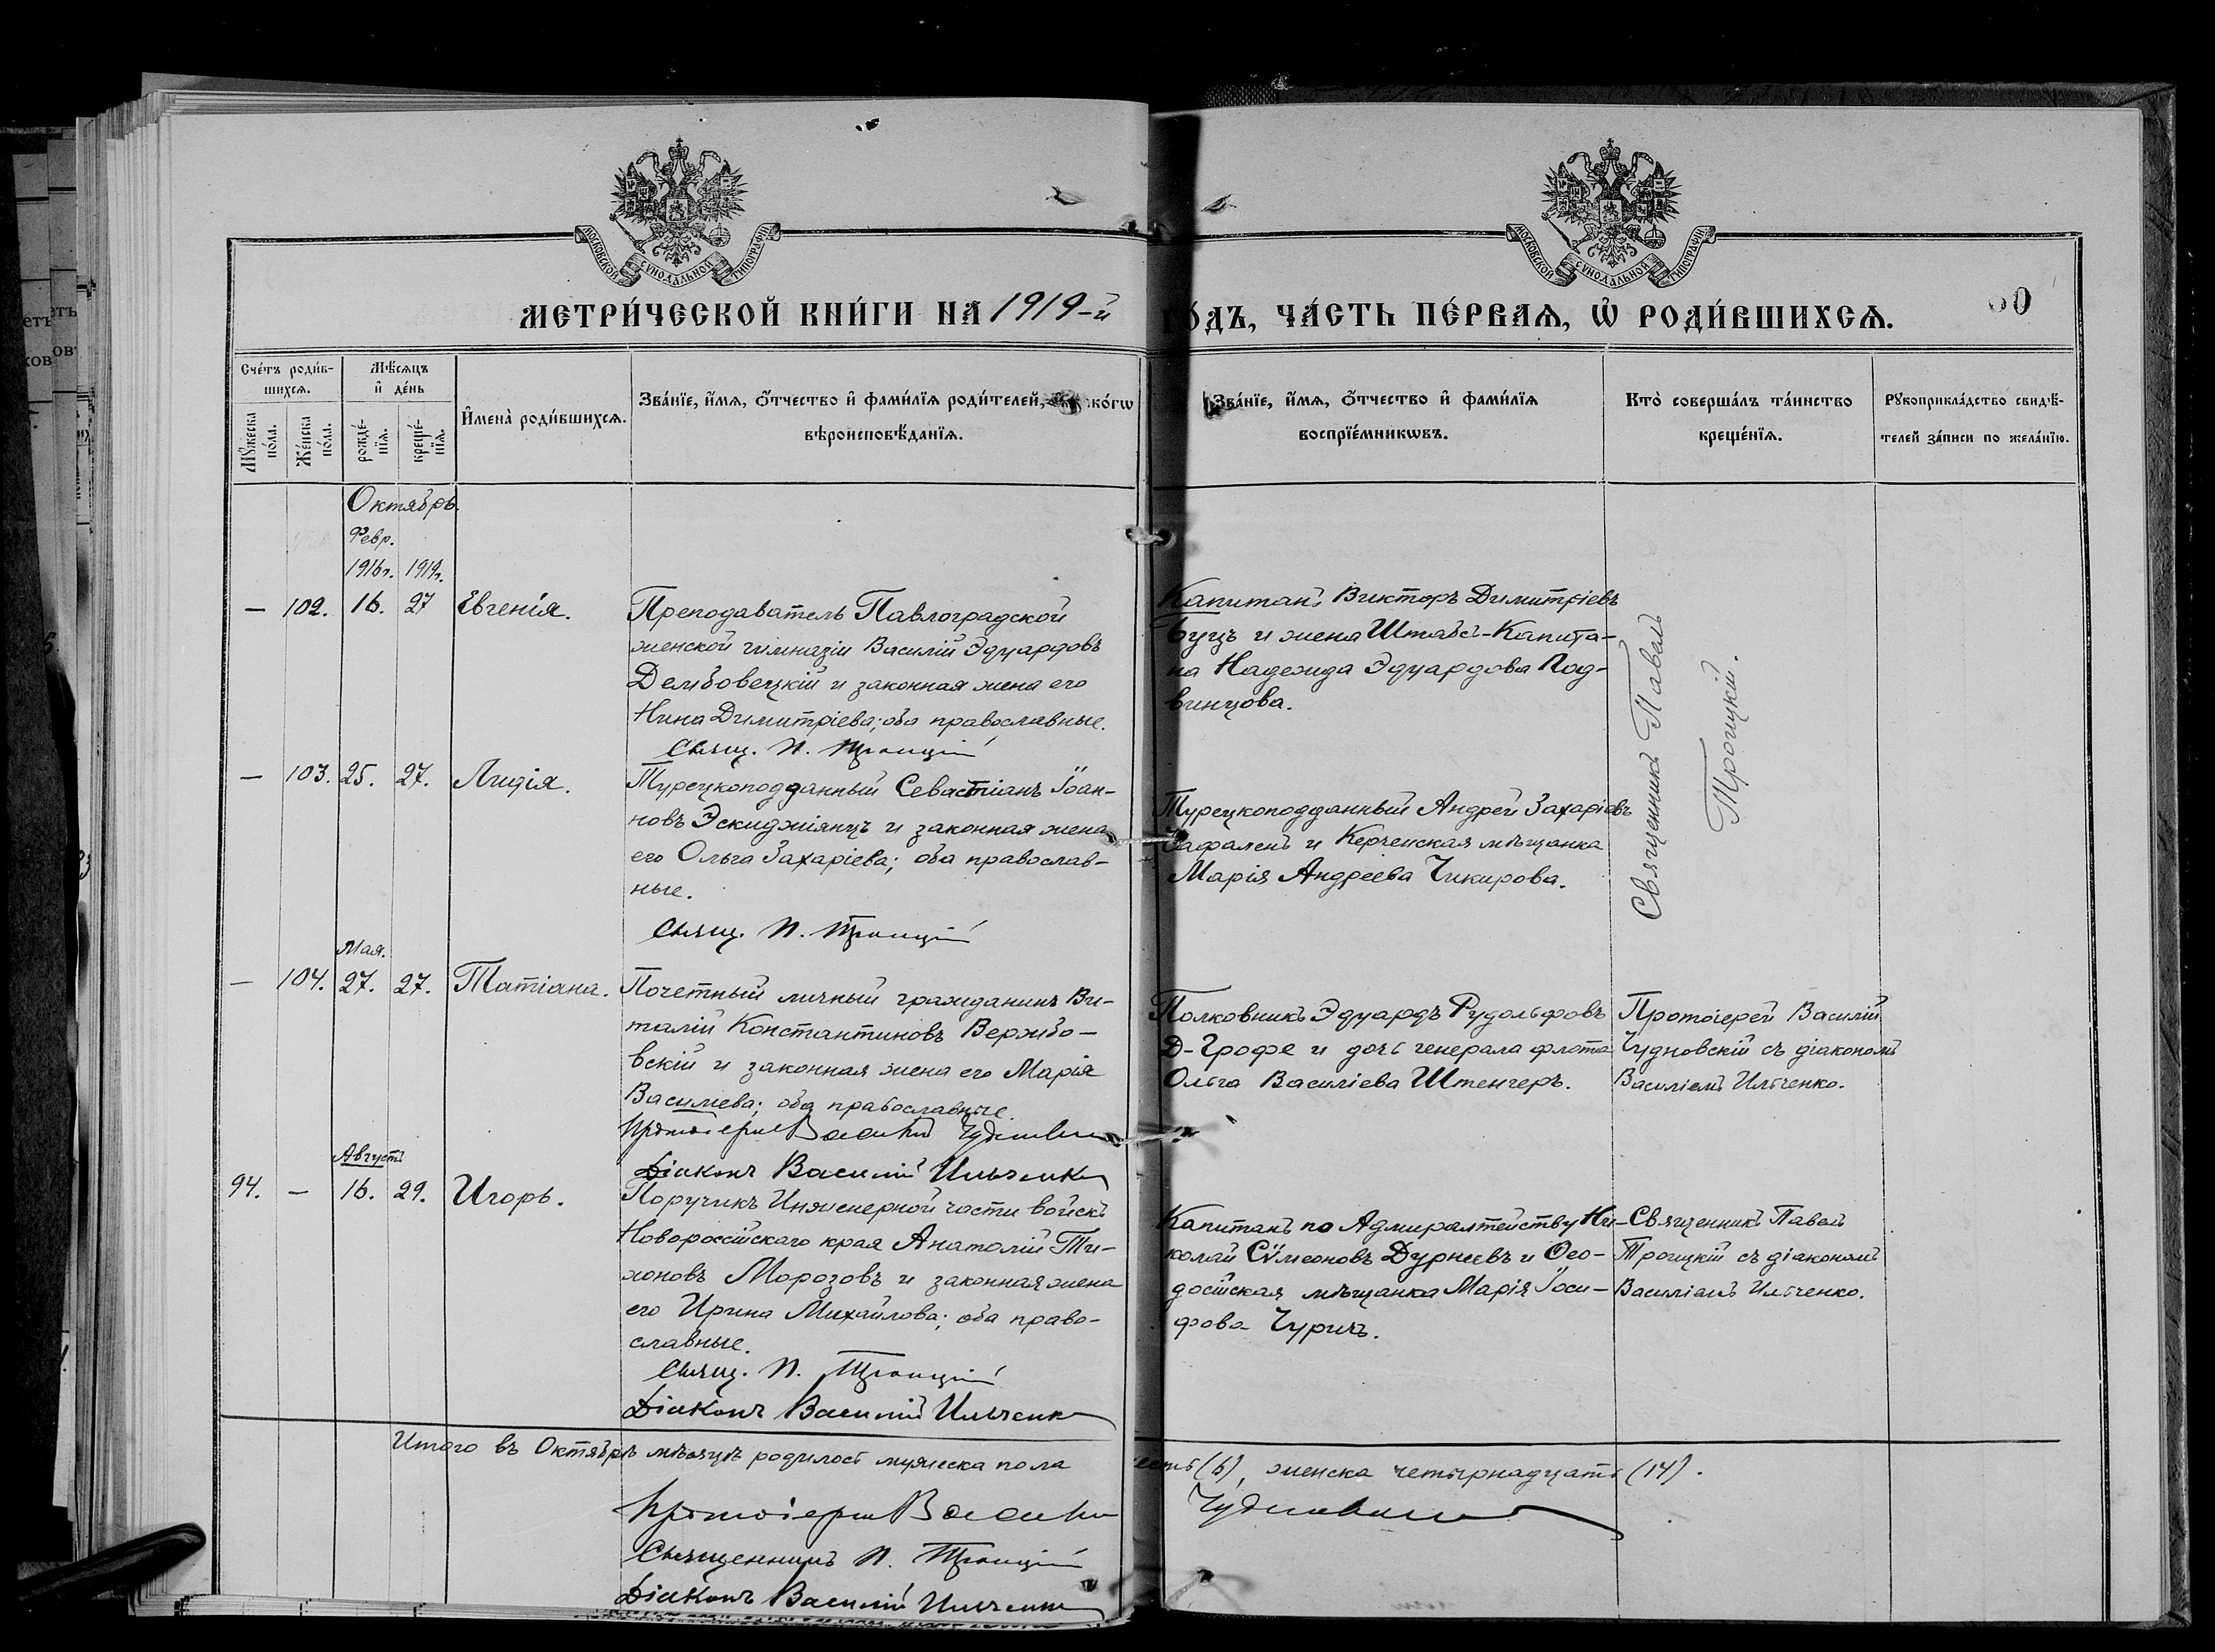 МОСКОВСКОЙ СѴНОДАЛЬНОЙ ТИПОГРАФІИ
МОСКОВСКОЙ СѴНОДАЛЬНОЙ ТИПОГРАФІИ
МЕТРИ́ЧЕСКОЙ КНИ́ГИ НА 1919-й
ГО́ДЪ, ЧА́СТЬ ПЕ́РВАѦ, Ѡ҆ РОДИ́ВШИХСѦ.
Сче́тъ роди́в-
шихсѧ.
Мѣ́сѧцъ
и҆ де́нь
Мꙋ́жеска по́ла.
Же́нска по́ла.
рожде́-
нїѧ.
креще́-
нїѧ.
И҆мена̀ роди́вшихсѧ.
Зва́нїе, и҆́мѧ, ѻ҆́тчество и҆ фами́лїѧ роди́телей,
вѣроисповѣ́данїѧ.
Зва́нїе, и҆́мѧ, ѻ҆́тчество и҆ фами́лїѧ
воспрїе́мникѡвъ.
Кто̀ соверша́лъ та́инство
креще́нїѧ.
Рꙋкоприкла́дство свидѣ́-
телей за́писи по жела́нїю.
Октябрь.
Февр.
1916г. 1919г.
— 102. 16. 27 Евгенія.
Преподаватель Павлоградской
женской гимназіи Василій Эдуардовъ
Дембовецкій и законная жена его
Нина Димитріева; оба православные.
Свящ. П. Троицкій
Капитанъ Викторъ Димитріевъ
Буцъ и жена Штабсъ-Капита-
на Надежда Эдуардова Под-
винцова.
Священникъ Павелъ
Троицкій.
— 103. 25. 27. Лидія.
Турецкоподданный Севастіанъ Іоан-
новъ Эскиджіянцъ и законная жена
его Ольга Захаріева; оба православ-
ные.
Свящ. П. Троицкій
Турецкоподданный Андрей Захаріевъ
и Керченская мѣщанка
Марія Андреева Чикирова.
Мая.
— 104. 27. 27. Татіана.
Почетный личный гражданинъ Ви-
талій Константиновъ Вержбо-
вскій и законная жена его Марія
Василиева; оба православные.
Протоіерей Василій Чудновскій
Діаконъ Василій Ильченко
Полковникъ Эдуардъ Рудольфовъ
Д-Грофе и дочь генерала флота
Ольга Василіева Штенгеръ.
Протоіерей Василій
Чудновскій съ діакономъ
Василіемъ Ильченко.
Августъ
94. — 16. 29. Игорь.
Поручикъ Инженерной части войскъ
Новороссійскаго края Анатолій Ти-
хоновъ Морозовъ и законная жена
его Ирина Михайлова; оба право-
славные.
Свящ. П. Троицкій
Діаконъ Василій Ильченко
Капитанъ по Адмиралтейству Ни-
колай Сѵмеоновъ Дурневъ и Ѳео-
досійская мѣщанка Марія Іоси-
фова Чуричъ.
Священникъ Павелъ
Троицкій съ діакономъ
Василіемъ Ильченко.
Итого въ Октябрѣ мѣсяцѣ родилось мужеска пола
(6), женска четырнадцать (14).
Протоіерей Василій Чудновскій
Священникъ П. Троицкій
Діаконъ Василій Ильченко